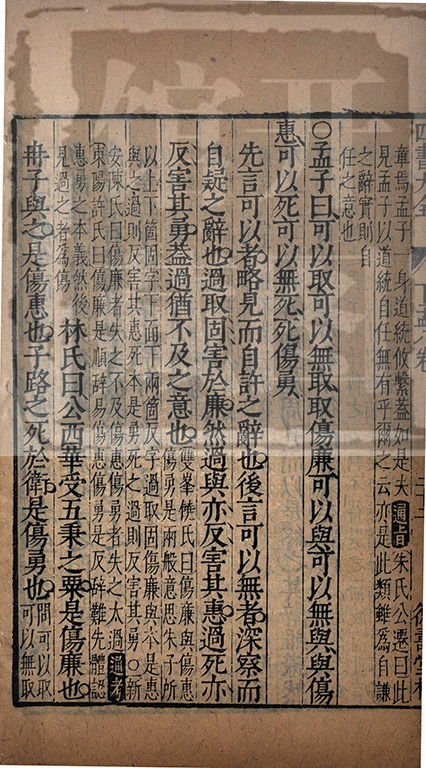 章焉孟子一身道統攸繫蓋如是夫通旨朱氏公遷曰此
見孟子以道統自任無有乎爾之云亦是此類雖爲自謙
之辭實則自
任之意也
○孟子曰可以取可以無取取傷廉可以與可以無與與傷
惠可以死可以無死死傷勇
先言可以者略見而自許之辭也後言可以無者深察而
自疑之辭也過取固害於廉然過與亦反害其惠過死亦
反害其勇蓋過猶不及之意也
雙峯饒氏曰傷廉與傷惠
傷勇是兩般意思朱子所
以上下箇固字下面下兩箇反字過取固傷廉與本是惠
與之過則反害其惠死本是勇死之過則反害其勇○新
安陳氏曰傷廉者失之不及傷惠傷勇者失之太過通考
東陽許氏曰傷廉是順辭易傷惠傷勇是反辭難先體認
惠勇之本義然後
見過之者爲傷
林氏曰公西華受五秉之粟是傷廉也
冉子與之是傷惠也子路之死於衛是傷勇也
問可以取
可以無取